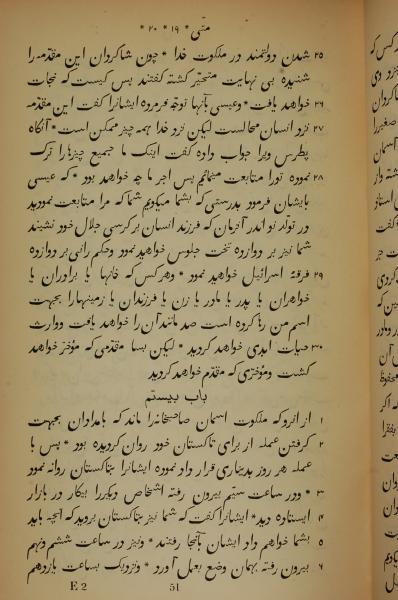 متی * ۱۹ * ۲۰ *
۲۵ شدن دولتمند در ملکوت خدا * چون شاکردان این مقدّمه را
شنیدند بی نهایت متحیر کشته کفتند پس کیست که نجات
۲۶ خواهد یافت * وعیسی بآنها توجّه فرموده ایشانرا کفت این مقدّمه
۲۷ نزد انسان محالست لیکن نزد خدا همه چیز ممکن است * آنکاه
پطرس ویرا جواب داده کفت اینک ما جمیع چیزها را ترک
۲۸ نموده تورا متابعت مینمائیم پس اجر ما چه خواهد بود * که عیسی
بایشان فرمود بدرستی که بشما میکویم شما که مرا متابعت نمودید
در تولّد نو اندر آنزمان که فرزند انسان بر کرسی جلال خود نشیند
شما نیز بر دوازده تخت جلوس خواهید نمود وحکم رانی بر دوازده
۲۹ فرقهٔ اسرائیل خواهید نمود * وهر کس که خانها یا برادران یا
خواهران یا پدر یا مادر یا زن یا فرزندان یا زمینها را بجهت
اسم من رها کرده است صد مانند آن را خواهد یافت ووارث
۳۰ حیات ابدی خواهد کردید * لیکن بسا مقدّمی که مؤخّر خواهد
کشت ومؤخّری که مقدّم خواهد کردید
باب بیستم
۱ از آنرو که ملکوت آسمان صاحبخانه را ماند که بامدادان بجهت
۲ کرفتن عمله از برای تاکستان خود روان کردیده بود * پس با
عمله هر روز بدیناری قرار داد نموده ایشانرا بتاکستان روانه نمود
۳ * ودر ساعت سیّم بیرون رفته اشخاص دیکررا بیکار در بازار
۴ ایستاده دید * ایشانرا کفت که شما نیز بتاکستان بروید که آنچه باید
۵ بشما خواهم داد ایشان بآنجا رفتند * ونیز در ساعت ششم ونهم
۶ بیرون رفته بهمان وضع بعمل آورد * ونزدیک بساعت یازدهم
E 2
51